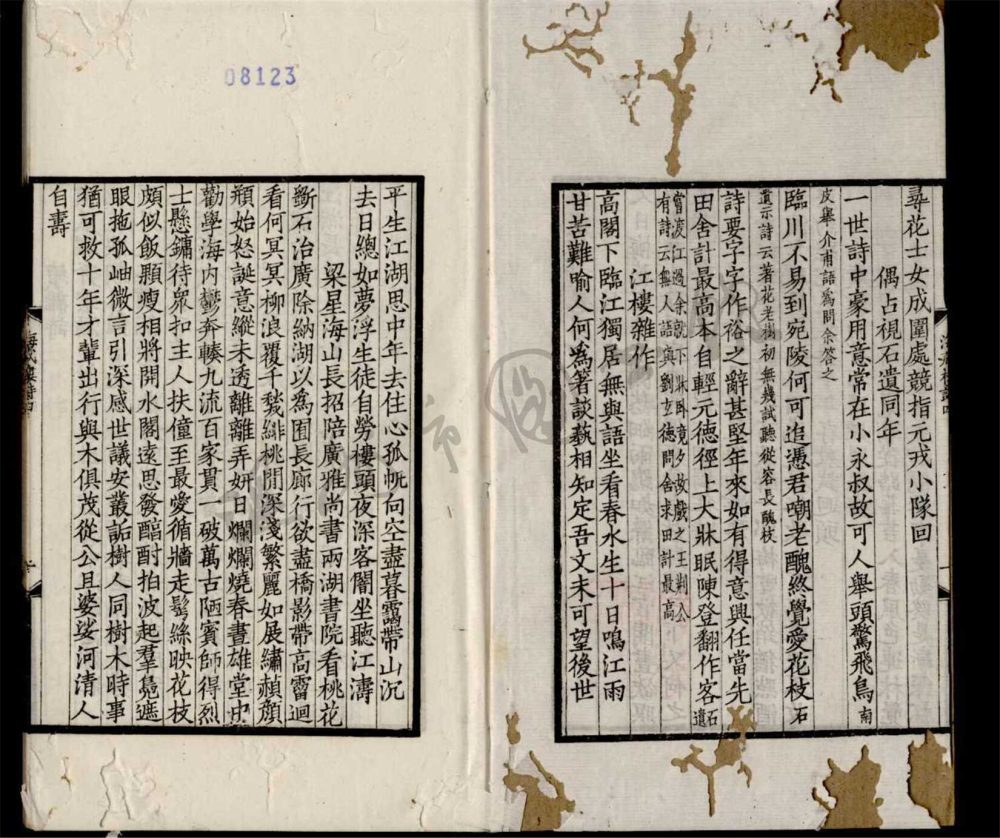 08123
尋花士女成圍處競指元戎小隊回
偶占視石遺同年
一世詩中豪用意常在小永叔故可人舉頭驚飛鳥南
皮舉介甫語為問余答之
臨川不易到宛陵何可追憑君嘲老醜終覺愛花枝石
遺示詩云著花老樹初無幾試聽從容長醜枝
詩要字字作裕之辭甚堅年來如有得意興任當先
田舍計最高本自輕元德徑上大牀眠陳登翻作客石遺
嘗渡江過余就下牀臥竟夕故戲之王荊公
有詩云無人語與劉玄德問舍求田計最高
江樓雜作
高閣下臨江獨居無與語坐看春水生十日鳴江雨
甘苦難喻人何為著談藝相知定吾文未可望後世
平生江湖思中年去住心孤帆向空盡暮靄帶山沉
去日總如夢浮生徒自勞樓頭夜深客闇坐聽江濤
梁星海山長招陪廣雅尚書兩湖書院看桃花
斷石治廣除納湖以為囿長廊行欲盡橋影帶高霤迴
看何冥冥柳浪覆千甃緋桃閒深淺繁麗如展繡赬顏
頩始怒誕意縱未透離離弄妍日爛爛燒春晝雄堂史
勸學海內鬱奔輳九流百家貫一破萬古陋賓師得烈
士懸鏞待眾扣主人扶僮至最愛循牆走鬢絲映花枝
頗似飯顆瘦相將開水閣遠思發醞酎拍波起羣鳧遮
眼拖孤岫微言引深感世議安叢詬樹人同樹木時事
猶可救十年才輩出行與木俱茂從公且婆娑河清人
自壽